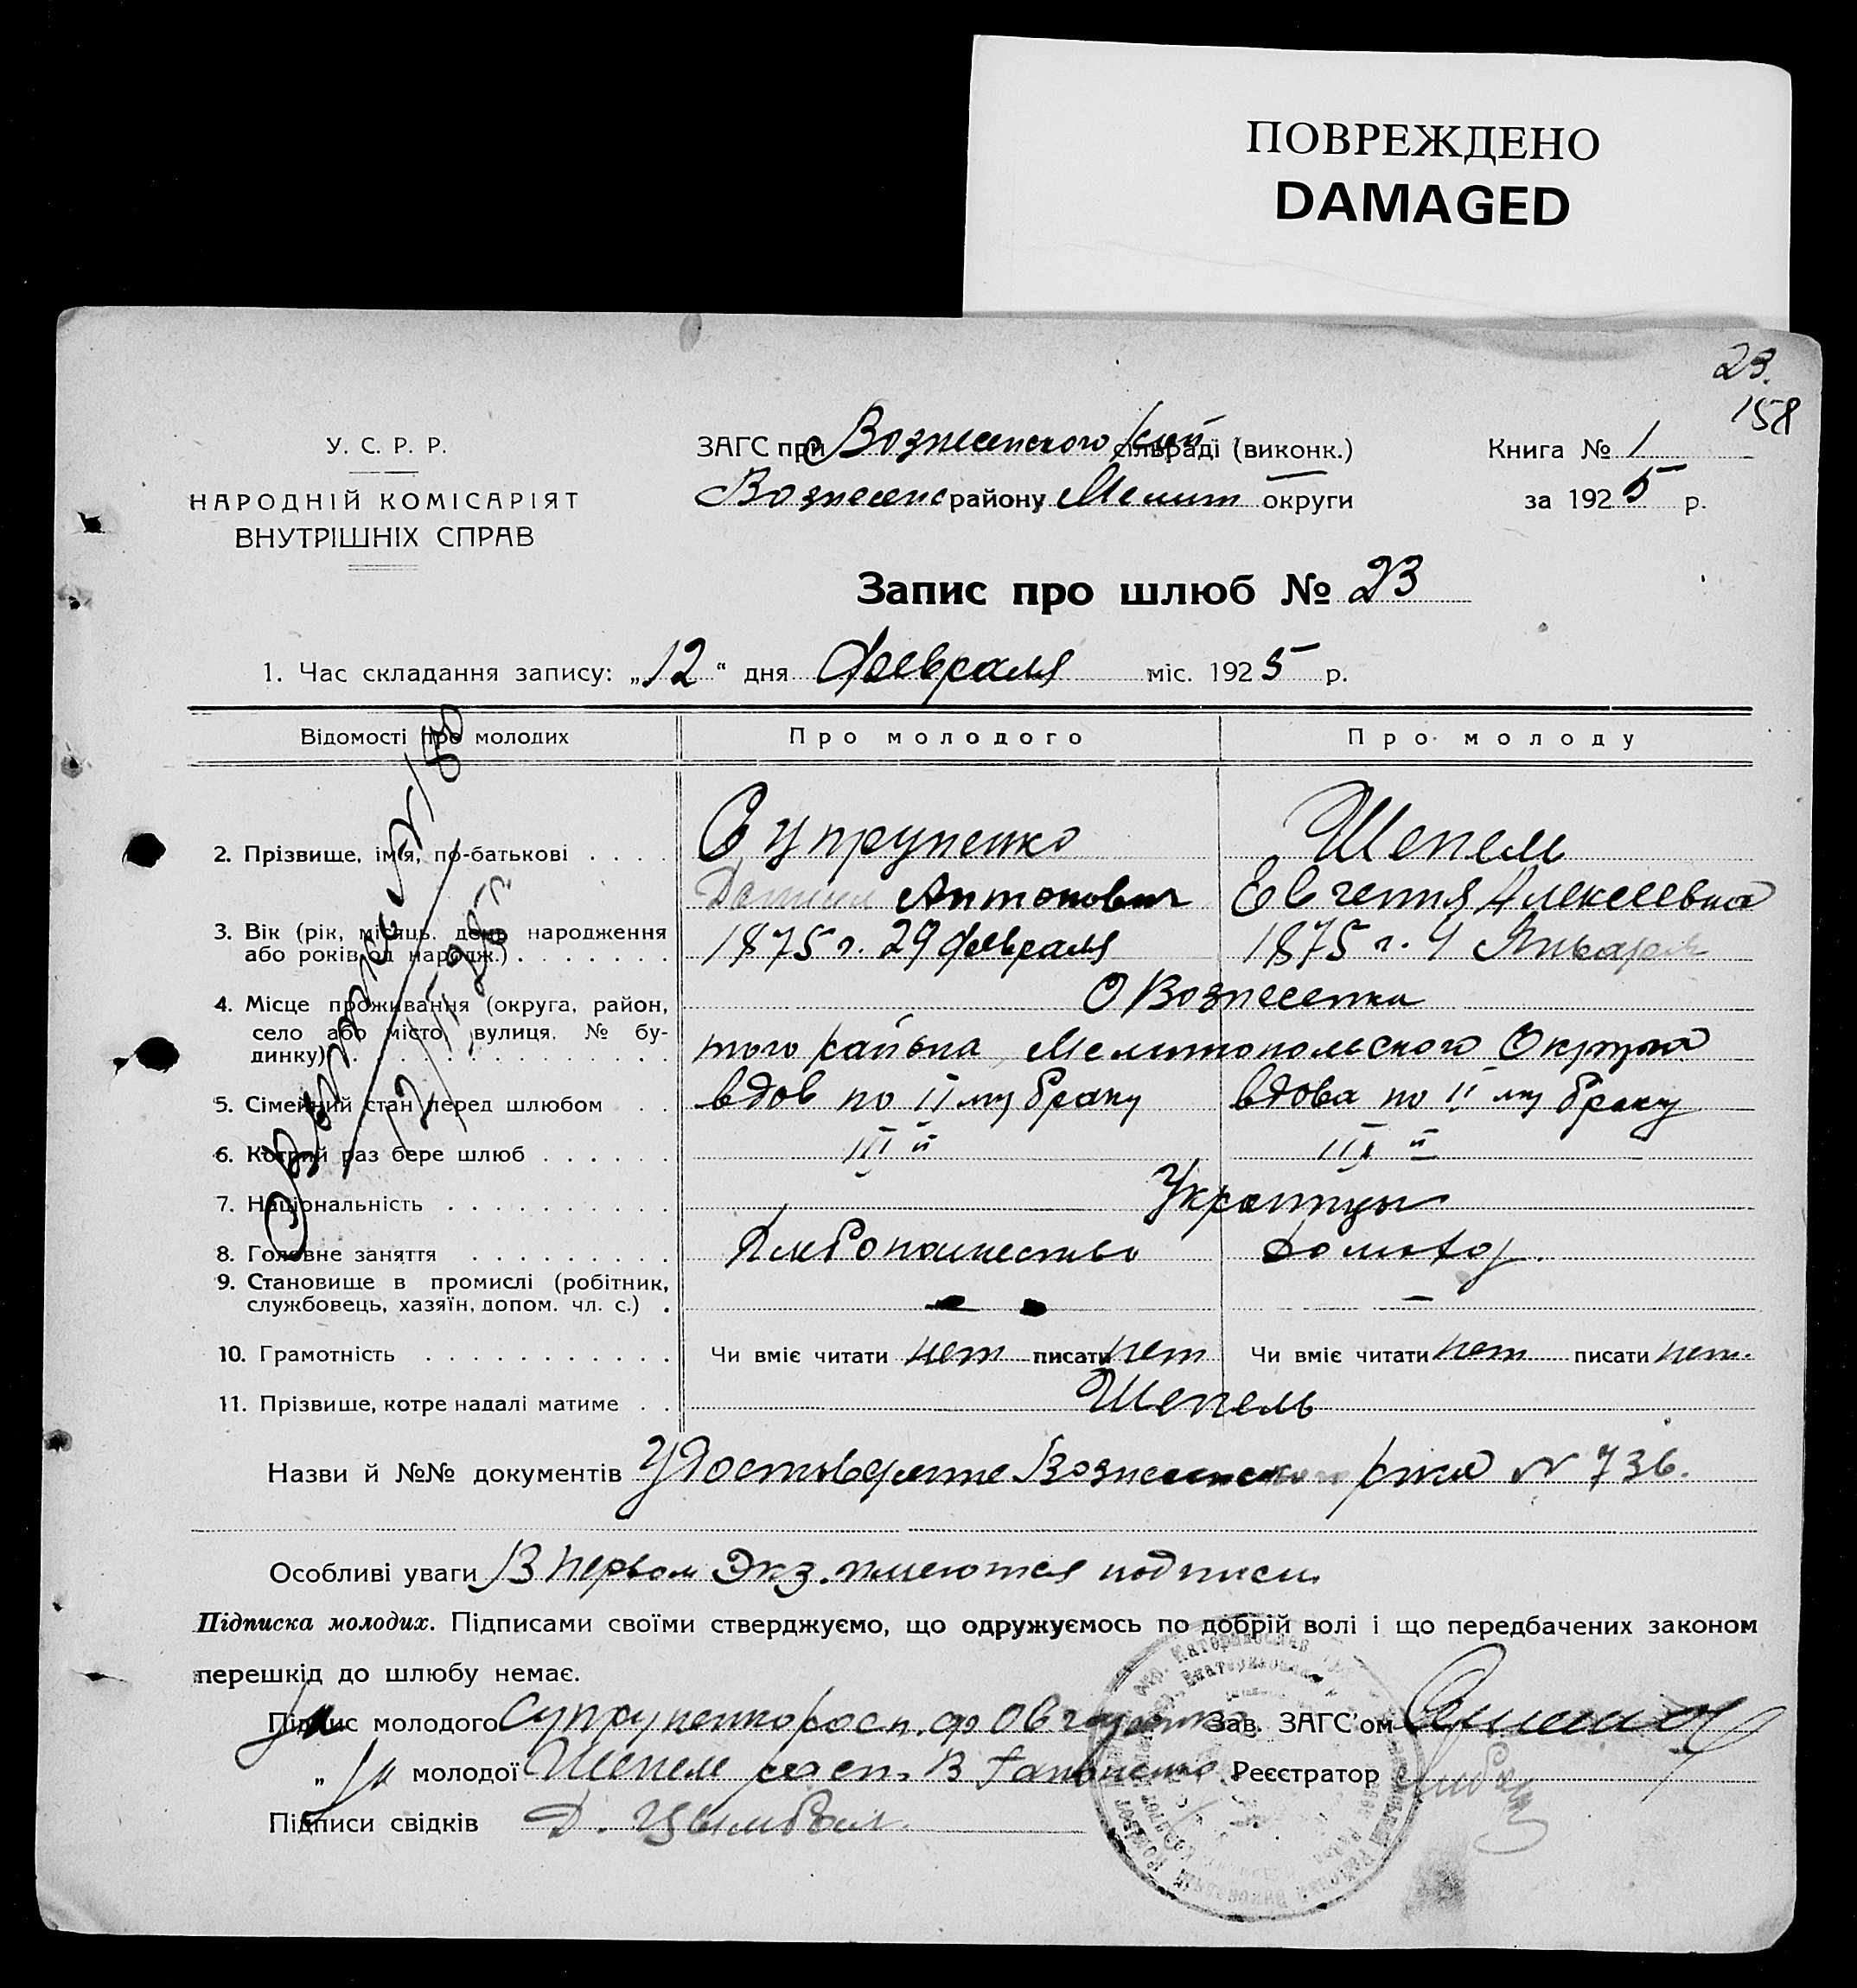 ПОВРЕЖДЕНО
DAMAGED
23.
158
У. С. Р. Р.
НАРОДНІЙ КОМІСАРІЯТ
ВНУТРІШНІХ СПРАВ
ЗАГС при Вознесенского сільраді (виконк.)
Вознесенс району Мелит округи
Книга № 1
за 1925 р.
Запис про шлюб № 23
1. Час складання запису: „12“ дня февраля міс. 1925 р.
Відомості про молодих Про молодого Про молоду
2. Прізвище, ім'я, по-батькові Супруненко Шепель
Антонович Евгения Алексеевна
3. Вік (рік, місяць, день народження
або років од народж.) 1875 г. 29 февраля 1875 г. 4 Января
4. Місце проживання (округа, район, С Вознесенка
село або місто, вулиця, № бу-
динку) того района Мелитопольского Округа
5. Сімейний стан перед шлюбом вдов по II му браку вдова по II му браку
6. Котрий раз бере шлюб III й III й
7. Національність Украинцы
8. Головне заняття Хлебопашество домохоз.
9. Становище в промислі (робітник,
службовець, хазяїн, допом. чл. с.) –
10. Грамотність Чи вміє читати нет писати нет Чи вміє читати нет писати нет.
11. Прізвище, котре надалі матиме Шепель
Назви й №№ документів Удостоверение Вознесенского рика № 736.
Особливі уваги В первом Экз. имеются подписи
Підписка молодих. Підписами своїми стверджуємо, що одружуємось по добрій волі і що передбачених законом
перешкід до шлюбу немає.
Підпис молодого Супруненко расп. Зав. ЗАГС'ом
„ молодої Шепель расп. В Реєстратор
Підписи свідків Д. Цымбал